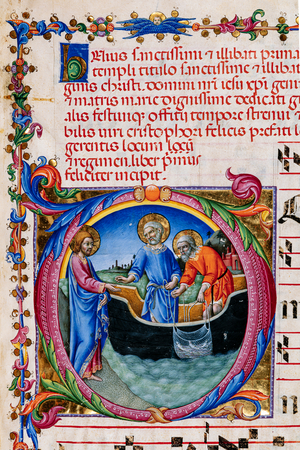 elius sanctissimi et illibati prima
templi titulo sanctissime et illibati
ginis christi. domini nr̄i iesu xp̄i geni
et matris marie dignissime dedicati g
alis festiuiq; offitij tempore strenui
bilis uiri cristophori felicis prefati
gerentis locum
et regimen. liber primus
feliciter incipit.